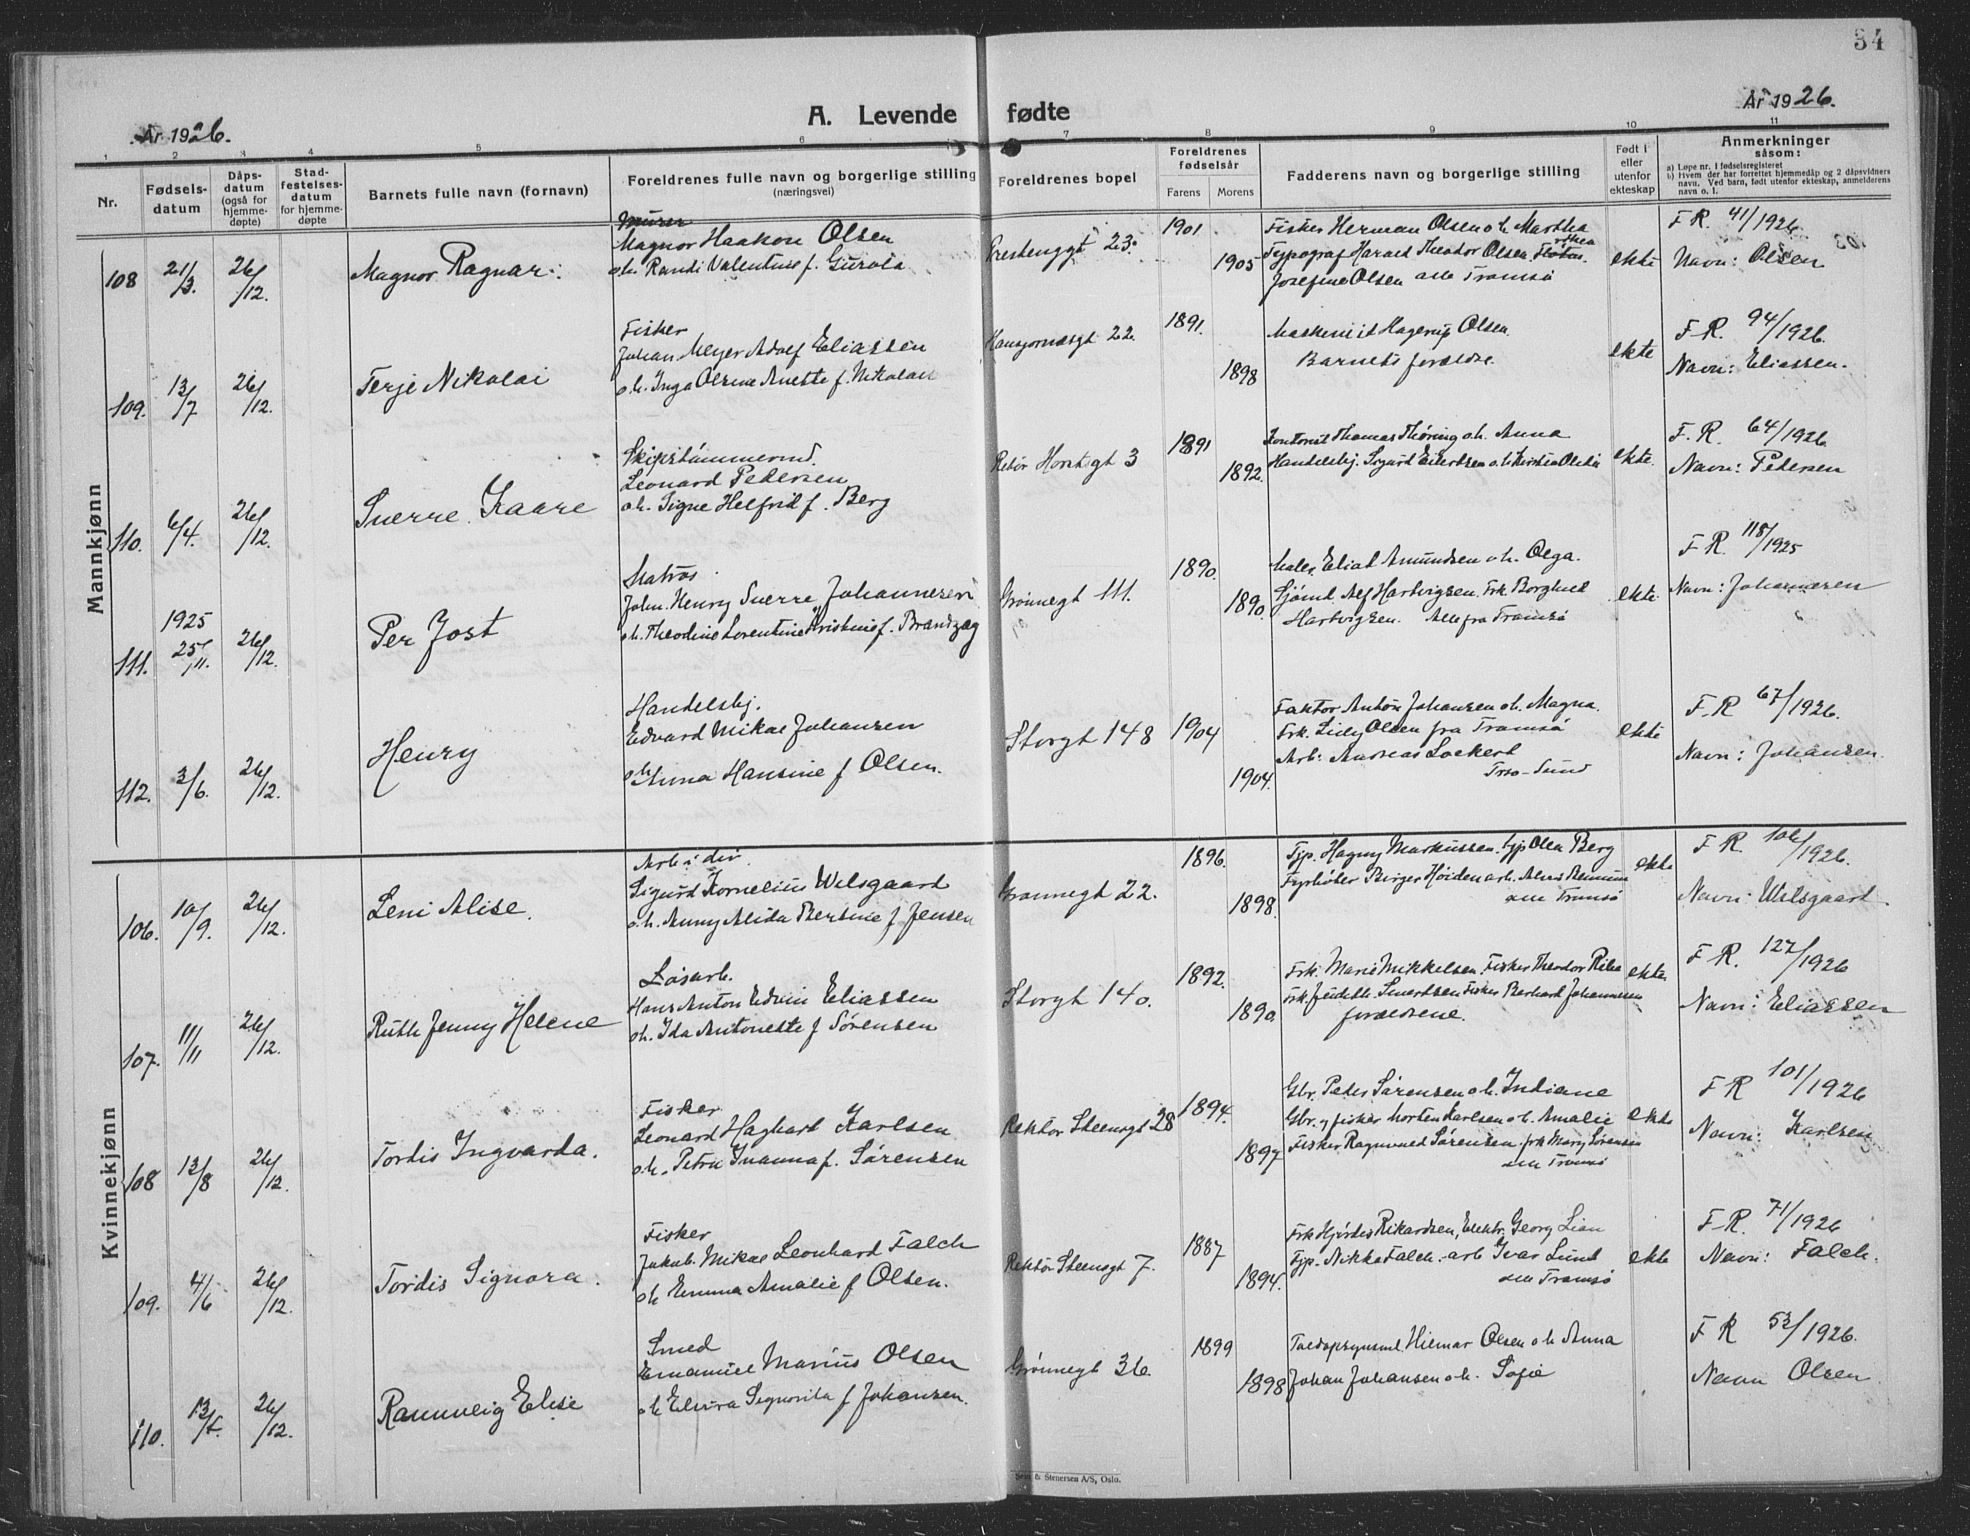 34
År 1926.
A. Levende fødte
År 1926.
1 2 3 4 5 6 7 8 9 10 11
Nr.
Fødsels-
datum
Dåps-
datum
(også for
hjemme-
døpte)
Stad-
festelses-
datum
for hjemme-
døpte
Barnets fulle navn (fornavn)
Foreldrenes fulle navn og borgerlige stilling
(næringsvei)
Foreldrenes bopel
Foreldrenes
fødselsår
Farens Morens
Fadderens navn og borgerlige stilling
Født i
eller
utenfor
ekteskap
Anmerkninger
såsom:
a) Løpe nr. i fødselsregisteret
b) Hvem der har forrettet hjemmedåp og 2 dåpsvidners
navn. Ved barn, født utenfor ekteskap, anmelderens
navn o. l.
Mannkjønn
108 21/3. 26/12. Magnor Ragnar.
Murer
Magnor Haakon Olsen
o.h. Randi Valentine f.
23.
1901
1905
Fisker Herman Olsen o.h. Martha
Typograf Harald Theodor Olsen
Josefine Olsen alle Tromsø
ekte
F R. 41/1926
Navn: Olsen
109. 13/7 26/12. Terje Nikolai
Fisker
Johan Meyer Adolf Eliassen
o.h. Inga Olsine Anette f. Nikolaisen
22.
1891.
1898
Maskinist Hagerup Olsen.
Barnets foreldre.
ekte
F. R. 94/1926.
Navn: Eliassen.
110. 6/4. 26/12. Sverre Kaare
Skipstømmermd.
Leonard Pedersen
o.h. Signe Helfrid f. Berg
Rektor Horstsgt 3
1891
1892.
Kontorist Thomas Thøring o.h. Anna
Handelsbj. Sigurd Eilertsen o.h.
ekte.
F. R. 64/1926
Navn: Pedersen
111. 1925 25/11. 26/12. Per Jost
Matros.
John Henry Sverre Johannesen
o.h. Theodine Lorentine Kristine f. Brandzæg
Grønnegt 111.
1890.
1890.
Maler Eliot Amundsen o.h. Olga.
Sjømd Alf Hartvigsen. Frk. Borghild
Hartvigsen. Alle fra Tromsø
ekte.
F R. 118/1925
Navn: Johannesen
112. 3/6. 26/12. Henry
Handelsbj.
Edvard Mikal Johansen
o.h. Anna Hansine f Olsen.
Storgt 148
1904
1904.
Faktor Anton Johansen o.h. Magna.
Frk. Lilly Olsen fra Tromsø
Arb. Andreas Lockert
Trso-Sund
ekte
F-R 67/1926.
Navn: Johansen.
Kvinnekjønn
106. 10/9. 26/12. Leni Alise.
Arb. i div.
Sigurd Kornelius Wilsgaard
o.h. Anny Alida Bertine f Jensen
Grønnegt 22.
1896.
1898.
Typ. Hagny Markussen. typ Olea Berg
Fyrbøter Birger Høiden
alle Tromsø
ekte
F R. 106/1926.
Navn: Wilsgaard.
107. 11/11 26/12. Ruth Jenny Helene
Løsarb.
Hans Anton Edvin Eliassen
o.h. Ida Antonette f Sørensen
Storgt 140.
1892.
1890.
Frk. Marie Mikkelsen. Fisker Theodor
Fisker Berhard Johannesen
foreldrene.
ekte
F-R. 127/1926
Navn: Eliassen
108 13/8 26/12. Tordis Ingvarda.
Fisker
Leonard Hagbart Karlsen
o.h. Petra Ivanna f. Sørensen
Rektor Steensgt 28
1894.
1897
Gbr. Peter Sørensen o.h. Indiane
Gbr. og fisker Morten Karlsen o.h. Amalie
Fisker Ragnvald Sørensen. frk Mary Sørensen
alle Tromsø
ekte
F R 101/1926
Navn: Karlsen
109. 4/6 26/12. Tordis Signora.
Fisker
Jakob Mikal Leonhard Falch
o.h Emma Amalie f Olsen.
Rektor Steensgt 7.
1887
1894.
Frk Hjørdis Rikardsen, Elektr. Georg Lian
Typ. Nikka Falch. arb Ivar Lund
alle Tromsø
ekte
F-R. 71/1926
Navn: Falch.
110. 13/5. 26/12. Rannveig Elise
Smed
Emanuel Marius Olsen
o.h Elvira Signorita f Johansen.
Grønnegt 36.
1899
1898
Hilmar Olsen o.h Anna
Johan Johansen o.h. Sofie
F R 53/1926.
Navn Olsen
& Stenersen A/S, Oslo.